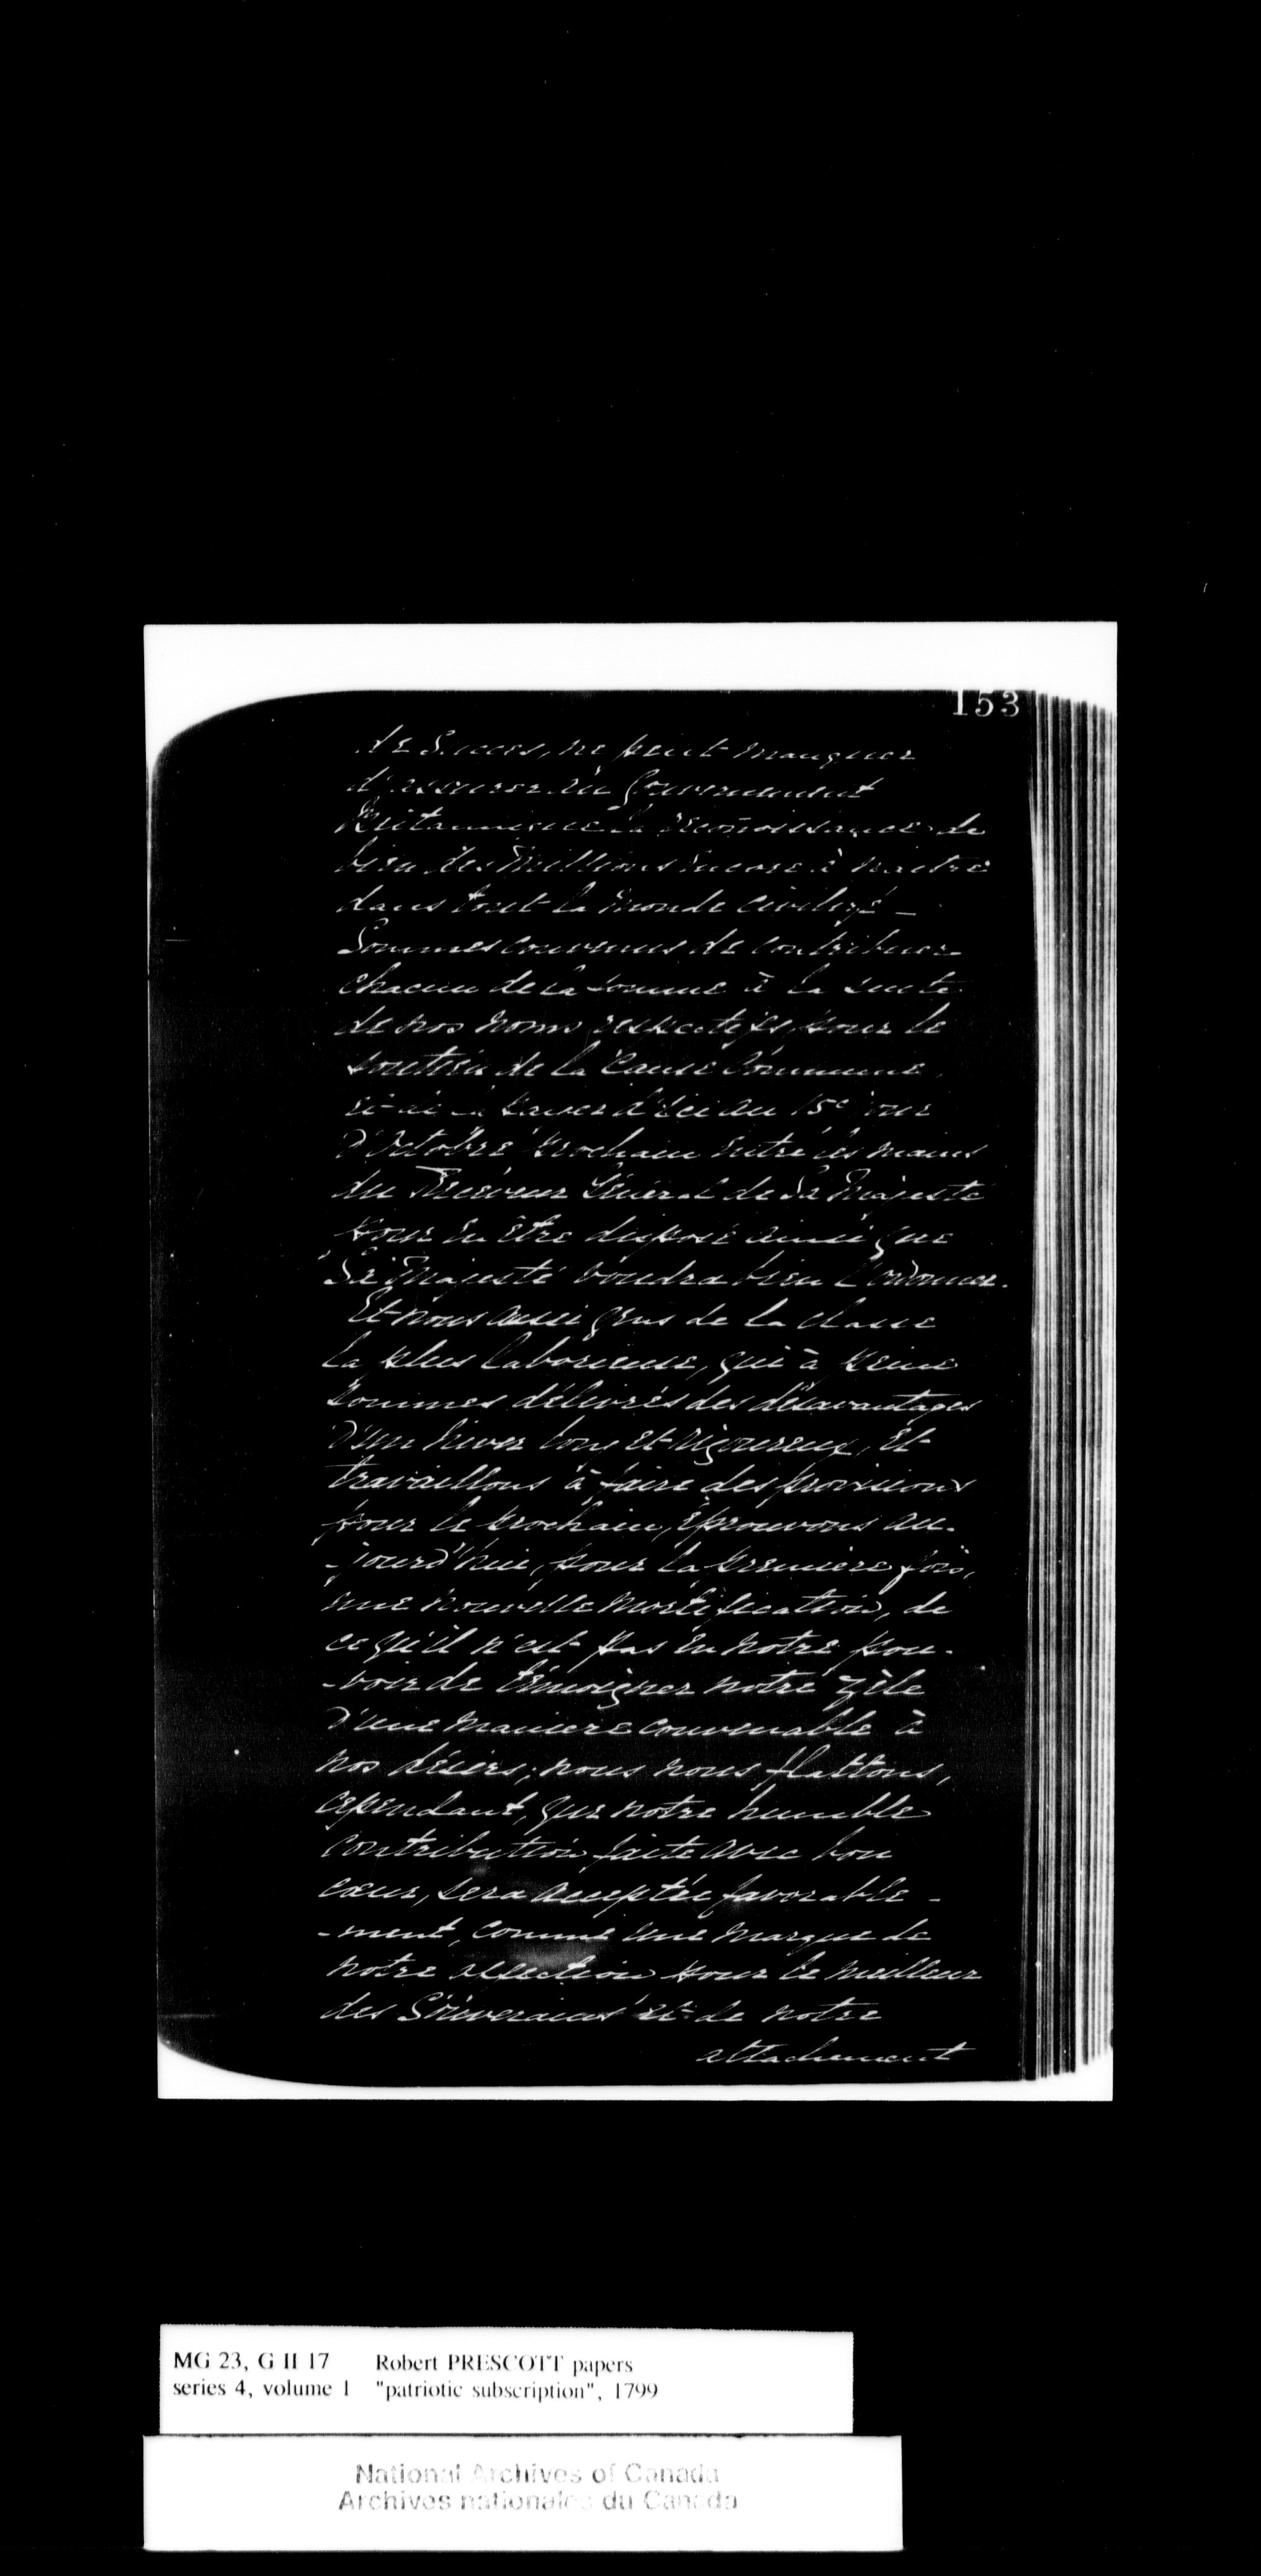 153
de Succes, ne peut manquer
d'assurer au Gouvernement
Britannique la reconoissance de
bien des Millions encore à naitre
dans tout le monde civilizé —
Sommes convenus de contribuer
chacun de la somme à la suite
de nos noms respectifs, pour le
soutien de la Cause Commune,
et de la payer d'ici au 15e jour
D'Octobre prochain entre les mains
du Receveur Général de Sa Majesté
pour en être disposé ainsi que
Sa Majesté voudra bien l'ordonner.
Et nous aussi gens de la classe
la plus laborieuse, qui à peine
sommes délivrés des désavantages
D'un hiver long et rigoureux, et
travaillons à faire des provisions
pour le prochain, éprouvons au-
-jourd'hui, pour la premiere fois,
une nouvelle mortification, de
ce qu'il n'est pas en notre pou-
-voir de témoigner notre zèle
D'une maniere convenable à
nos désirs; nous nous flattons,
cependant, que notre humble
contribution faite avec bon
cœur, sera acceptée favorable-
-ment, comme une marque de
notre affection pour le meilleur
des Souverains et de notre
attachement
MG 23, G II 17 Robert PRESCOTT papers
series 4, volume 1 "patriotic subscription", 1799
National Archives of Canada
Archives nationales du Canada